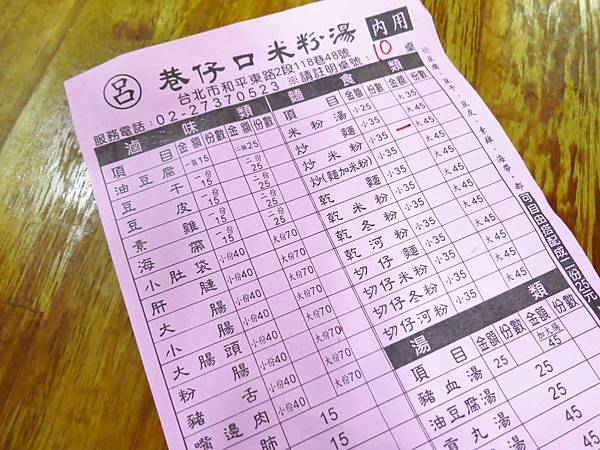 呂 巷仔口米粉湯 內用
台北市和平東路2段118巷48號
服務電話:02-27370523 ※請註明桌號: 10 桌
滷味類
項目 金額 份數 金額 份數
油豆腐 一個15 二個25
豆干 一份15 二份25
豆皮 一份15 二份25
素雞 一份15 二份25
海帶 一份15 二份25
小肚袋 小份40 大份70
肝腱 小份40 大份70
大腸 小份40 大份70
小腸 小份40 大份70
大腸頭 小份40 大份70
粉腸 小份40 大份70
豬舌 小份40 大份70
嘴邊肉 小份40 大份70
肺 15
15
麵食類
項目 金額 份數 金額 份數
米粉湯 小25 大35
炒麵 小35 大45
炒米粉 小35 大45
炒(麵加米粉) 小35 大45
乾麵 小35 大45
乾米粉 小35 大45
乾冬粉 小35 大45
乾河粉 小35 大45
切仔麵 小35 大45
切仔米粉 小35 大45
切仔冬粉 小35 大45
切仔河粉 小35 大45
湯類
項目 金額 份數 金額 份數
豬血湯 25 加大腸45
油豆腐湯 25
貢丸湯 25
45
45
※豆腐、豆干、豆皮、素雞、海帶,都可自由搭配成二份25元